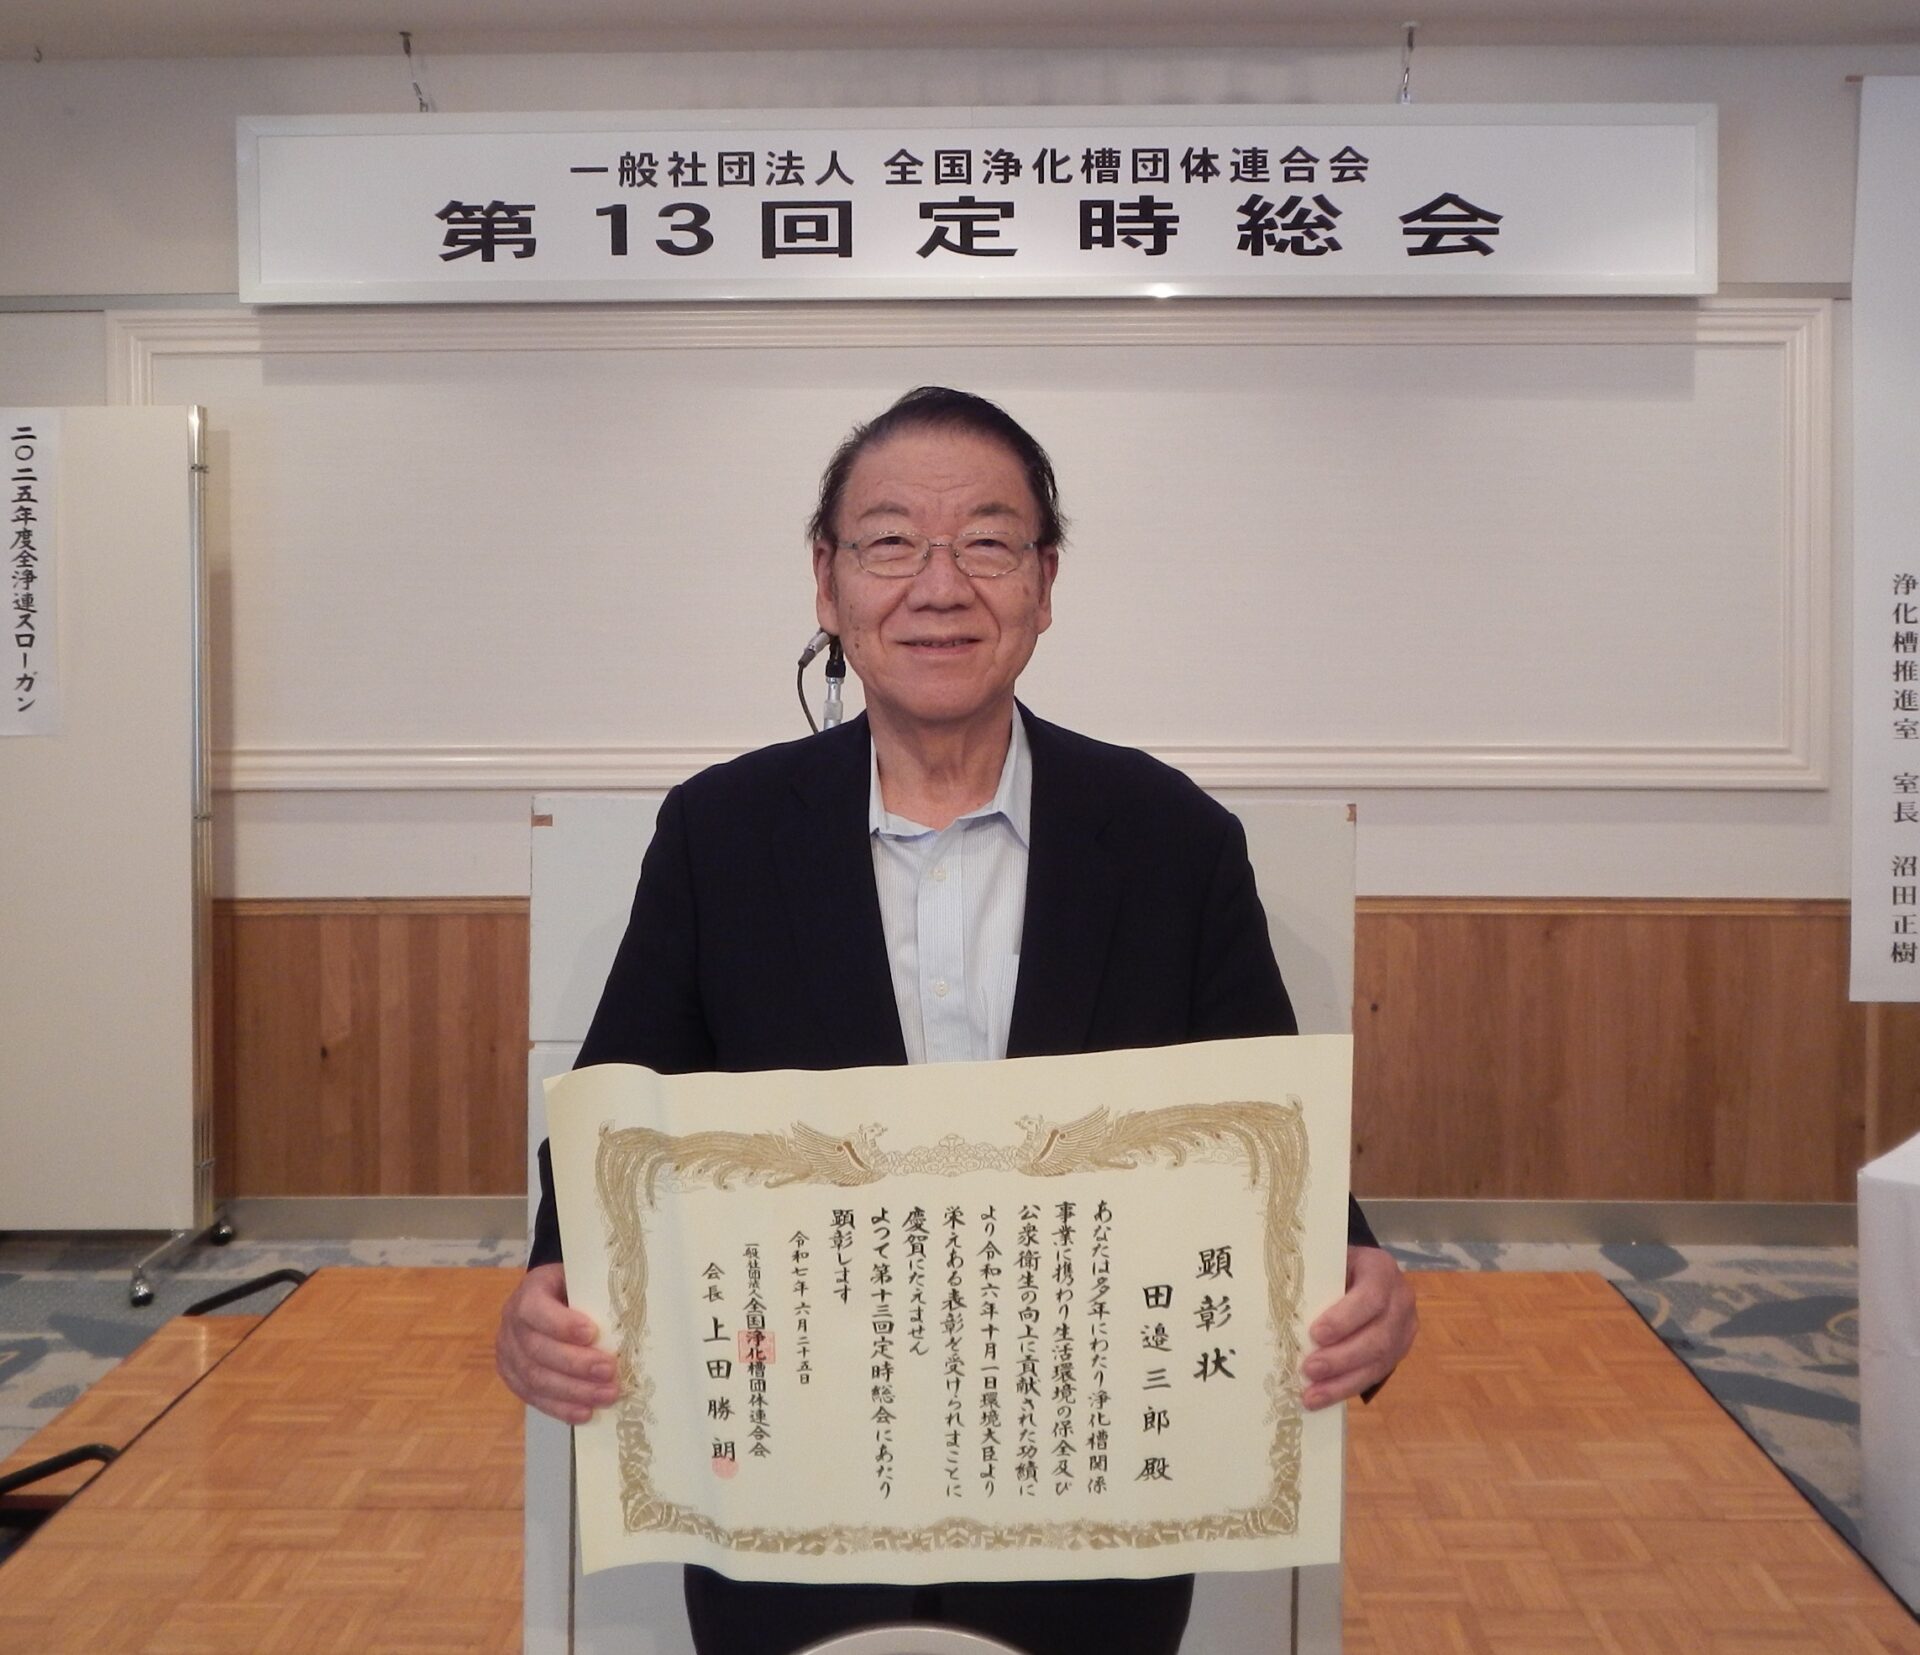 一般社団法人 全国浄化槽団体連合会
第13回定時総会
二〇二五年度全浄連スローガン
浄化槽推進室 室長 沼田正樹
顕彰状
田邉三郎殿
あなたは多年にわたり浄化槽関係
事業に携わり生活環境の保全及び
公衆衛生の向上に貢献された功績に
より令和六年十月一日環境大臣より
栄えある表彰を受けられまことに
慶賀にたえません
よつて第十三回定時総会にあたり
顕彰します
令和七年六月二十五日
一般社団法人全国浄化槽団体連合会
会長 上田勝朗